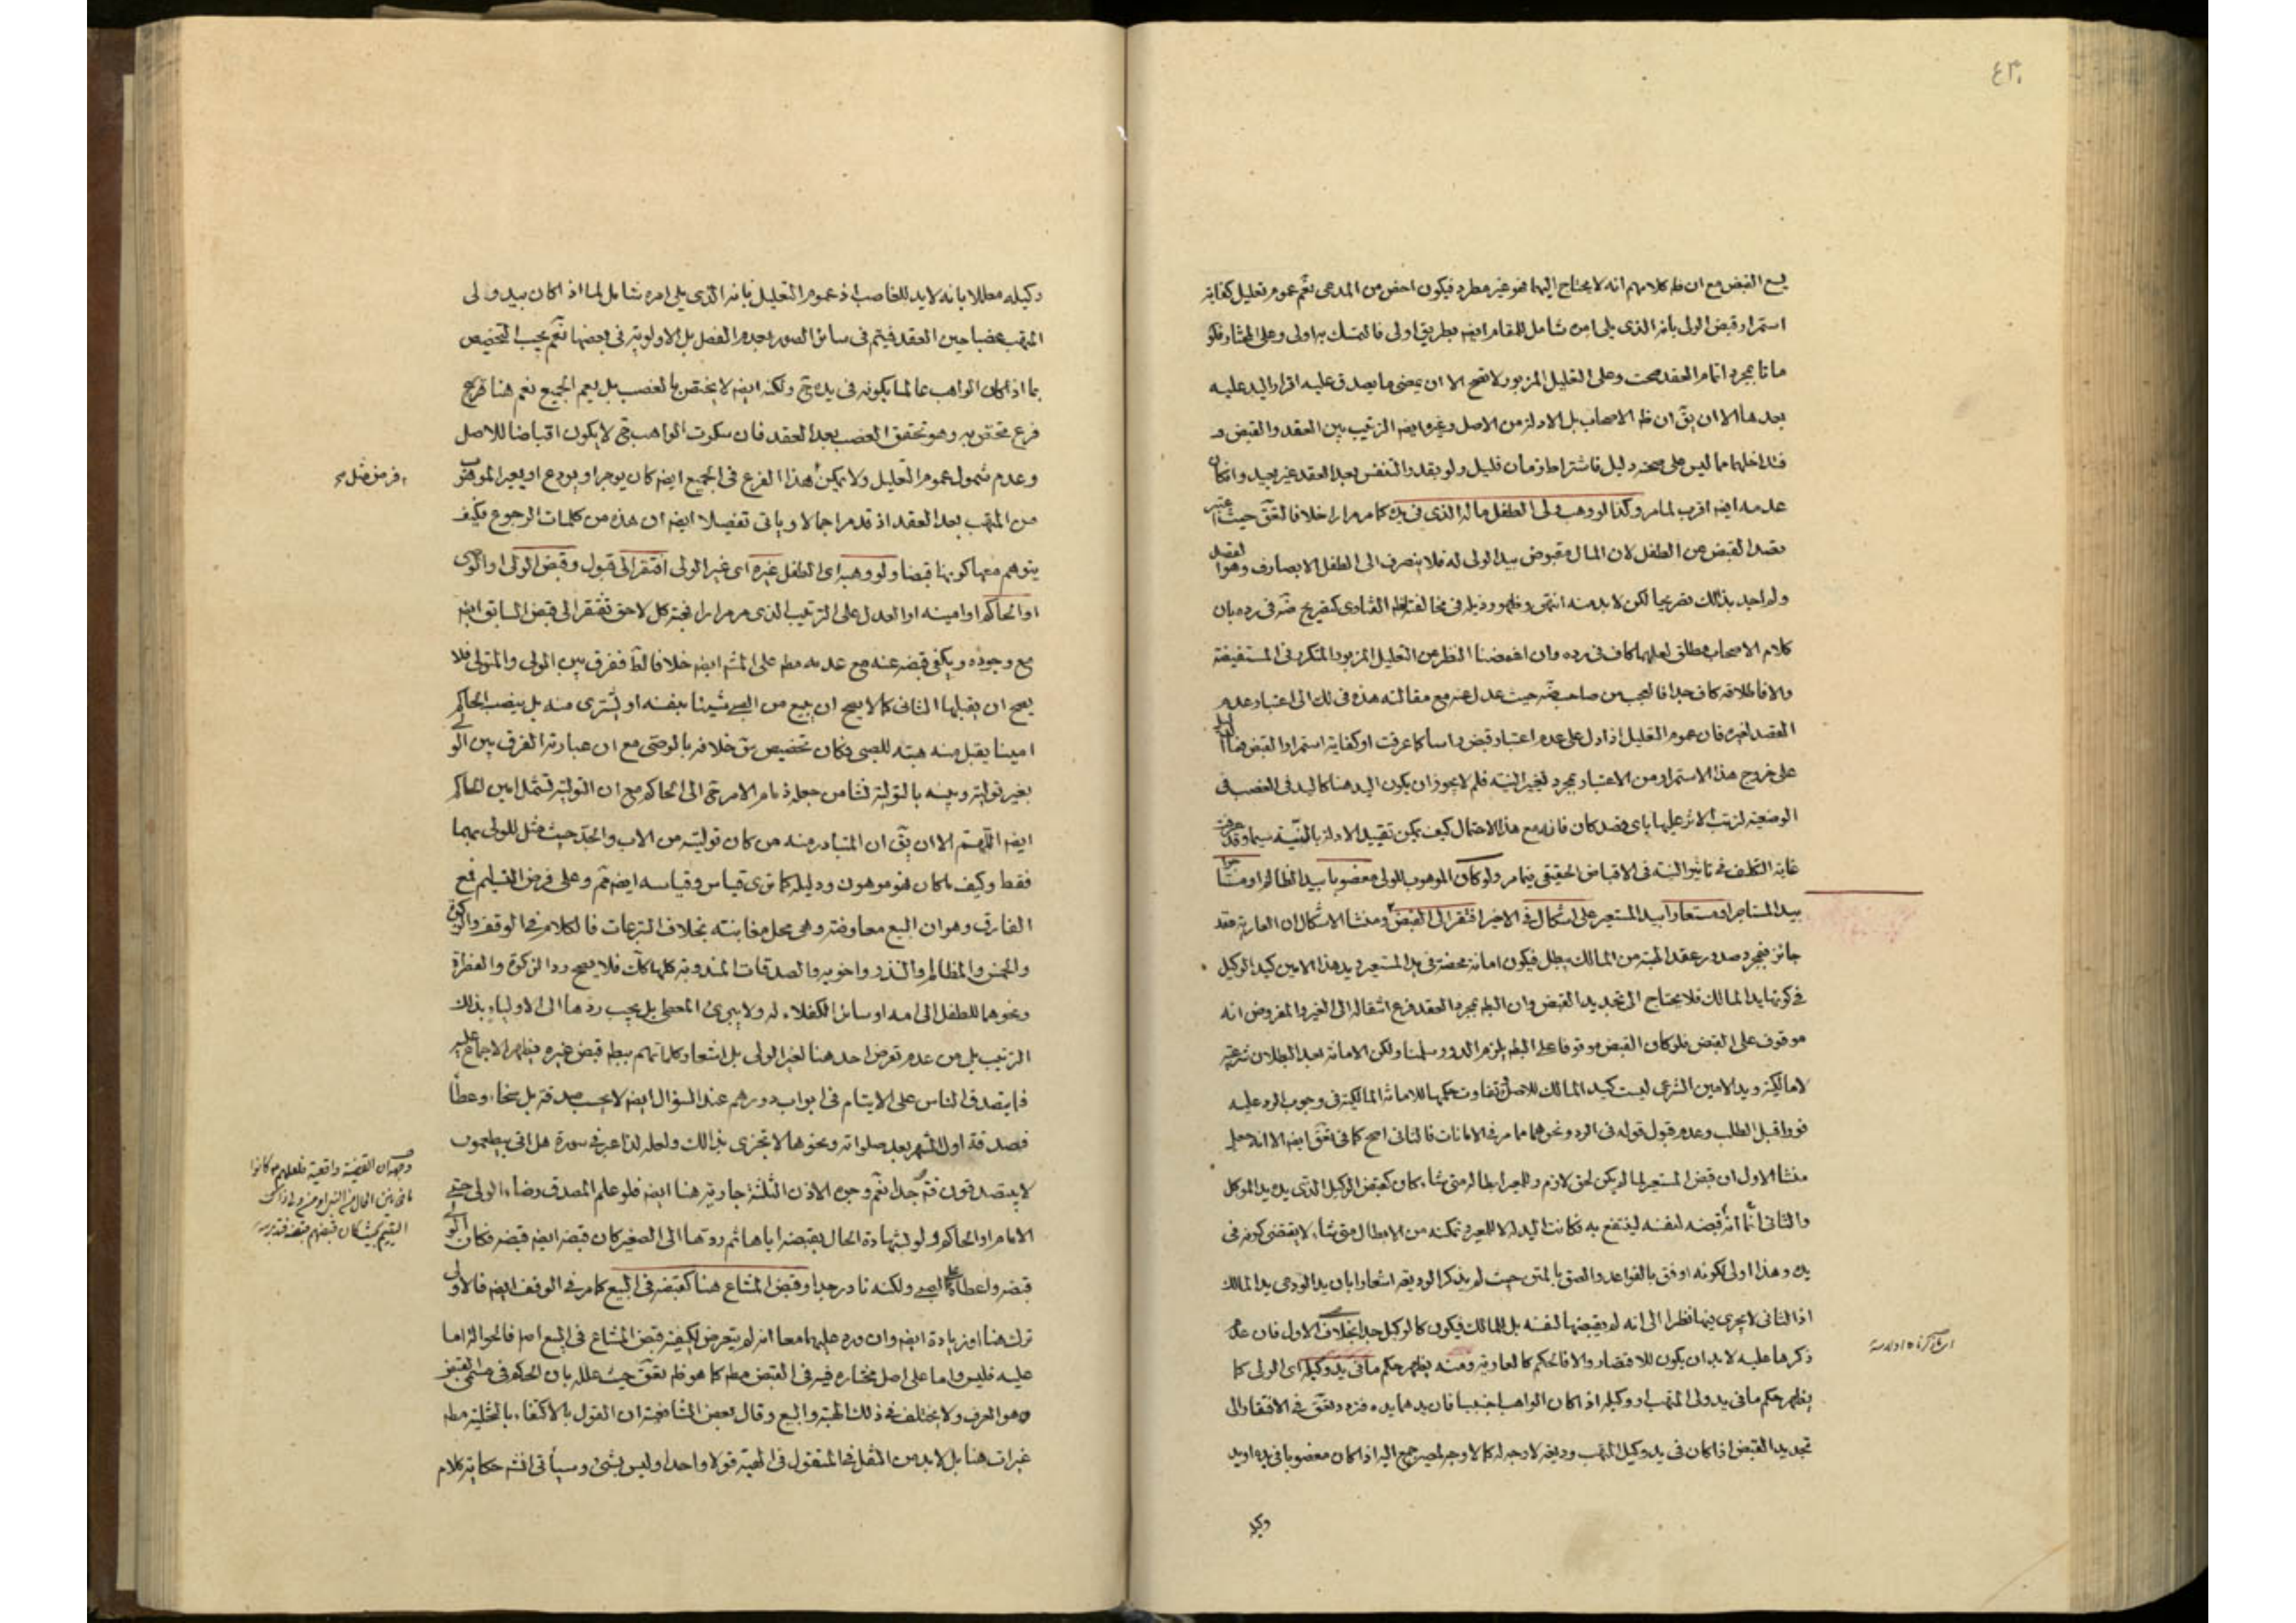 ٤٣٠
يسع القبض مع ان ظ كلامهم انه لا يحتاج اليها فهو غير مطرد فيكون اخص من المدعى نعم عموم تعليل كفاية
استمرار قبض الولى بانه الذى يلى امره شامل للمقام ايضا بطريق اولى فالتمسك به اولى وعلى المختار فلو
ماتا بمجرد اتمام العقد صحت وعلى التعليل المزبور لا تصح الا ان يمضى ما يصدق عليه اقرار اليد عليه
بعدها الا ان يق ان ظ الاصحاب بل الادلة من الاصل وغيره ايضا الترتيب بين العقد والقبض و
تداخلهما مما ليس على صحته دليل فاشتراط زمان قليل ولو بقدر التنفس بعد العقد غير بعيد وان كان
عدمه ايضا اقرب لما مر وكذا لو وهب ولى الطفل ماله الذى فى يده كما مر مرارا خلافا لتق حيث اعتبر
قصد القبض عن الطفل لان المال مقبوض بيد الولى له فلا ينصرف الى الطفل الا بصارف وهو القصد
ولم اجد بذلك تصريحا لكن لا بد منه انتهى وظهور ذيله فى مخالفته لظاهر الفتاوى كتصريح ضه فى رده بان
كلام الاصحاب مطلق لعلهما كاف فى رده وان اغمضنا النظر عن التعليل المزبور المتكرر فى المستفيضة
والا فاطلاقه كاف جدا فالعجب من صاحب ضه حيث عدل عنه مع مقالته هذه فى لك الى اعتبار عدم
القصد لغيره فان عموم التعليل اذا دل على عدم اعتبار قبض راسا كما عرفت او كفاية استمرار القبض فما الدليل
على خروج هذا الاستمرار من الاعتبار بمجرد تغيير النية فلم لا يجوز ان يكون اليد هنا كاليد فى الغصب فى
الوضعية لترتب الاثر عليها باى قصد كان فانه مع هذا الاحتمال كيف يمكن تقييد الادلة بالنية سيما وقد عرفت
غاية التكلف فى تاثير النية فى الاقباض الحقيقى فيما مر ولو كان الموهوب للولى مغصوبا بيد الظالم او مستاجرا
بيد المستاجر او مستعارا بيد المستعير على اشكال فى الاخير افتقر الى القبض ومنشا الاشكال ان العارية عقد
جائز فبمجرد صدور عقد الهبة من المالك يبطل فيكون امانة محضة فى يد المستعير ويد هذا الامين كيد الوكيل
فى كونها يد المالك فلا يحتاج الى تجديد القبض وان البط بمجرد العقد فرع انتقاله الى الغير والمفروض انه
موقوف على القبض فلو كان القبض موقوفا على البط يلزم الدور سلمنا ولكن الامانة بعد البطلان شرعية
لا مالكية ويد الامين الشرعى ليست كيد المالك للاصل وتفاوت حكمها للامانة المالكية فى وجوب الرد عليه
فورا قبل الطلب وعدم قبول قوله فى الرد ونحوهما مما مر فى الامانات فالثانى اصح كما فى تق ايضا الا انه جعل
منشا الاول ان قبض المستعير لما لم يكن لحق لازم وللمعير ابطاله متى شاء كان كقبض الوكيل الذى يده يد الموكل
والثانى انما انه قبضه لنفسه لينتفع به فكانت اليد له لا للمعير وتمكنه من الابطال متى شاء لا يقتضى كونه فى
يده وهذا اولى لكونه اوفق بالقواعد والصق بالمتن حيث لم يذكر الوديعة اشعارا بان يد الودعى يد المالك
اذ الثانى لا يجرى فيها نظرا الى انه لم يقبضها لنفسه بل للمالك فيكون كالوكيل جدا بخلاف الاول فان عدم
ذكرها عليه لا بد ان يكون للاقتصار والا فالحكم كالعارية ومنه يظهر حكم ما فى يد وكيله اى الولى كما
يظهر حكم ما فى يد ولى المتهب او وكيله اذا كان الواهب اجنبيا فان يدهما يده فتردد تق فى الافتقار الى
تجديد القبض اذا كان فى يد وكيل المتهب وديعة لا وجه له كما لا وجه لمصير جمع اليه اذا كان مغصوبا فى يده او يد
وكيله
وكيله معللا بانه لا يد للغاصب اذ عموم التعليل بانه الذى يلى امره شامل لما اذا كان بيد ولى
المتهب غصبا حين العقد فيتم فى سائر الصور بعدم الفصل بل الاولوية فى بعضها نعم يجب التخصيص
بما اذا كان الواهب عالما بكونه فى يده ح ولكنه ايضا لا يختص بالغصب بل يعم الجميع نعم هنا
فرع مختص به وهو تحقق الغصب بعد العقد فان سكوت الواهب ح لا يكون اقباضا للاصل
وعدم شمول عموم التعليل ولا يمكن هذا الفرع فى الجميع ايضا كان يوجر او يودع او يعير الموهوب
من المتهب بعد العقد اذ قد مر اجمالا وياتى تفصيلا ايضا ان هذه من كلمات الرجوع فكيف
يتوهم معها كونها قبضا ولو وهبه اى الطفل غيره اى غير الولى افتقر الى قبول وقبض الولى او الوصى
او الحاكم او امينه او العدل على الترتيب الذى مر مرارا فصحة كل لاحق تفتقر الى قبض السابق ايضا
مع وجوده ويكفى قبضه عنه مع عدمه مط على المش ايضا خلافا لط ففرق بين المولى والمتولى فلا
يصح ان يقبلها الثانى كما لا يصح ان يبيع من الصبى شيئا بنفسه او يشترى منه بل ينصب الحاكم
امينا يقبل منه هبته للصبى فكان تخصيص تق خلافه بالوصى مع ان عبارته الفرق بين الولى
بغير تولية وبينه بالتولية نشا من جعله تمام الامر حتى الى الحاكم مع ان التولية تشمل امين الحاكم
ايضا اللهم الا ان يق ان المتبادر منه من كان توليته من الاب والجد حيث مثل للولى بهما
فقط وكيف ما كان فهو موهون ودليله كما ترى قياس وقياسه ايضا مم وعلى فرض التسليم فمع
الفارق وهو ان البيع معاوضة وهى محل مغابنته بخلاف التبرعات فالكلام فى الوقف والزكوة
والخمس والمظالم والنذر واخويه والصدقات المندوبة كلها كك فلا يصح رد الزكوة والفطرة
ونحوهما للطفل الى امه او سائر الكفلاء له ولا يبرئ المعطى بل يجب ردها الى الاولياء بذلك
الترتيب بل من عدم تعرض احد هنا لغير الولى بل اشعار كلماتهم ببط قبض غيره يظهر الاجماع عليه
فما يتصدق الناس على الايتام فى ابواب دورهم عند السؤال ايضا لا يحسب صدقة بل سخاء وعطاء
فصدقة اول الشهر بعد صلواته ونحوها لا تجزى بذلك ولعله لذا عبر فى سورة هل اتى بيطعمون
لا يتصدقون فتم جدا نعم وجوه الاذن الثلثة جارية هنا ايضا فلو علم المصدق رضاء الولى حتى
الامام او الحاكم ولو بشهادة الحال بقبضه اياها ثم ردها الى الصغير كان قبضه ايضا قبضه فكان الولى
قبضه واعطاه الصبى ولكنه نادر جدا وقبض المشاع هنا كقبضه فى البيع كما مر فى الوقف ايضا فالاولى
ترك هنا او زيادة ايضا وان ورد عليهما معا انه لم يتعرض لكيفية قبض المشاع فى البيع اصلا فالحوالة اما
عليه فليس واما على اصل مختاره فيه فى القبض مط كما هو ظ تق حيث علله بان الحكم فى مسمى القبض
هو العرف ولا يختلف فى ذلك الهبة والبيع وقال بعض الشافعية ان القول بالاكتفاء بالتخلية مط
غير ات هنا بل لا بد من النقل فى المنقول فى الهبة قولا واحدا وليس بشئ وسياتى انشم حكاية كلام
وجهه ان القضية واقعية فلعلهم كانوا